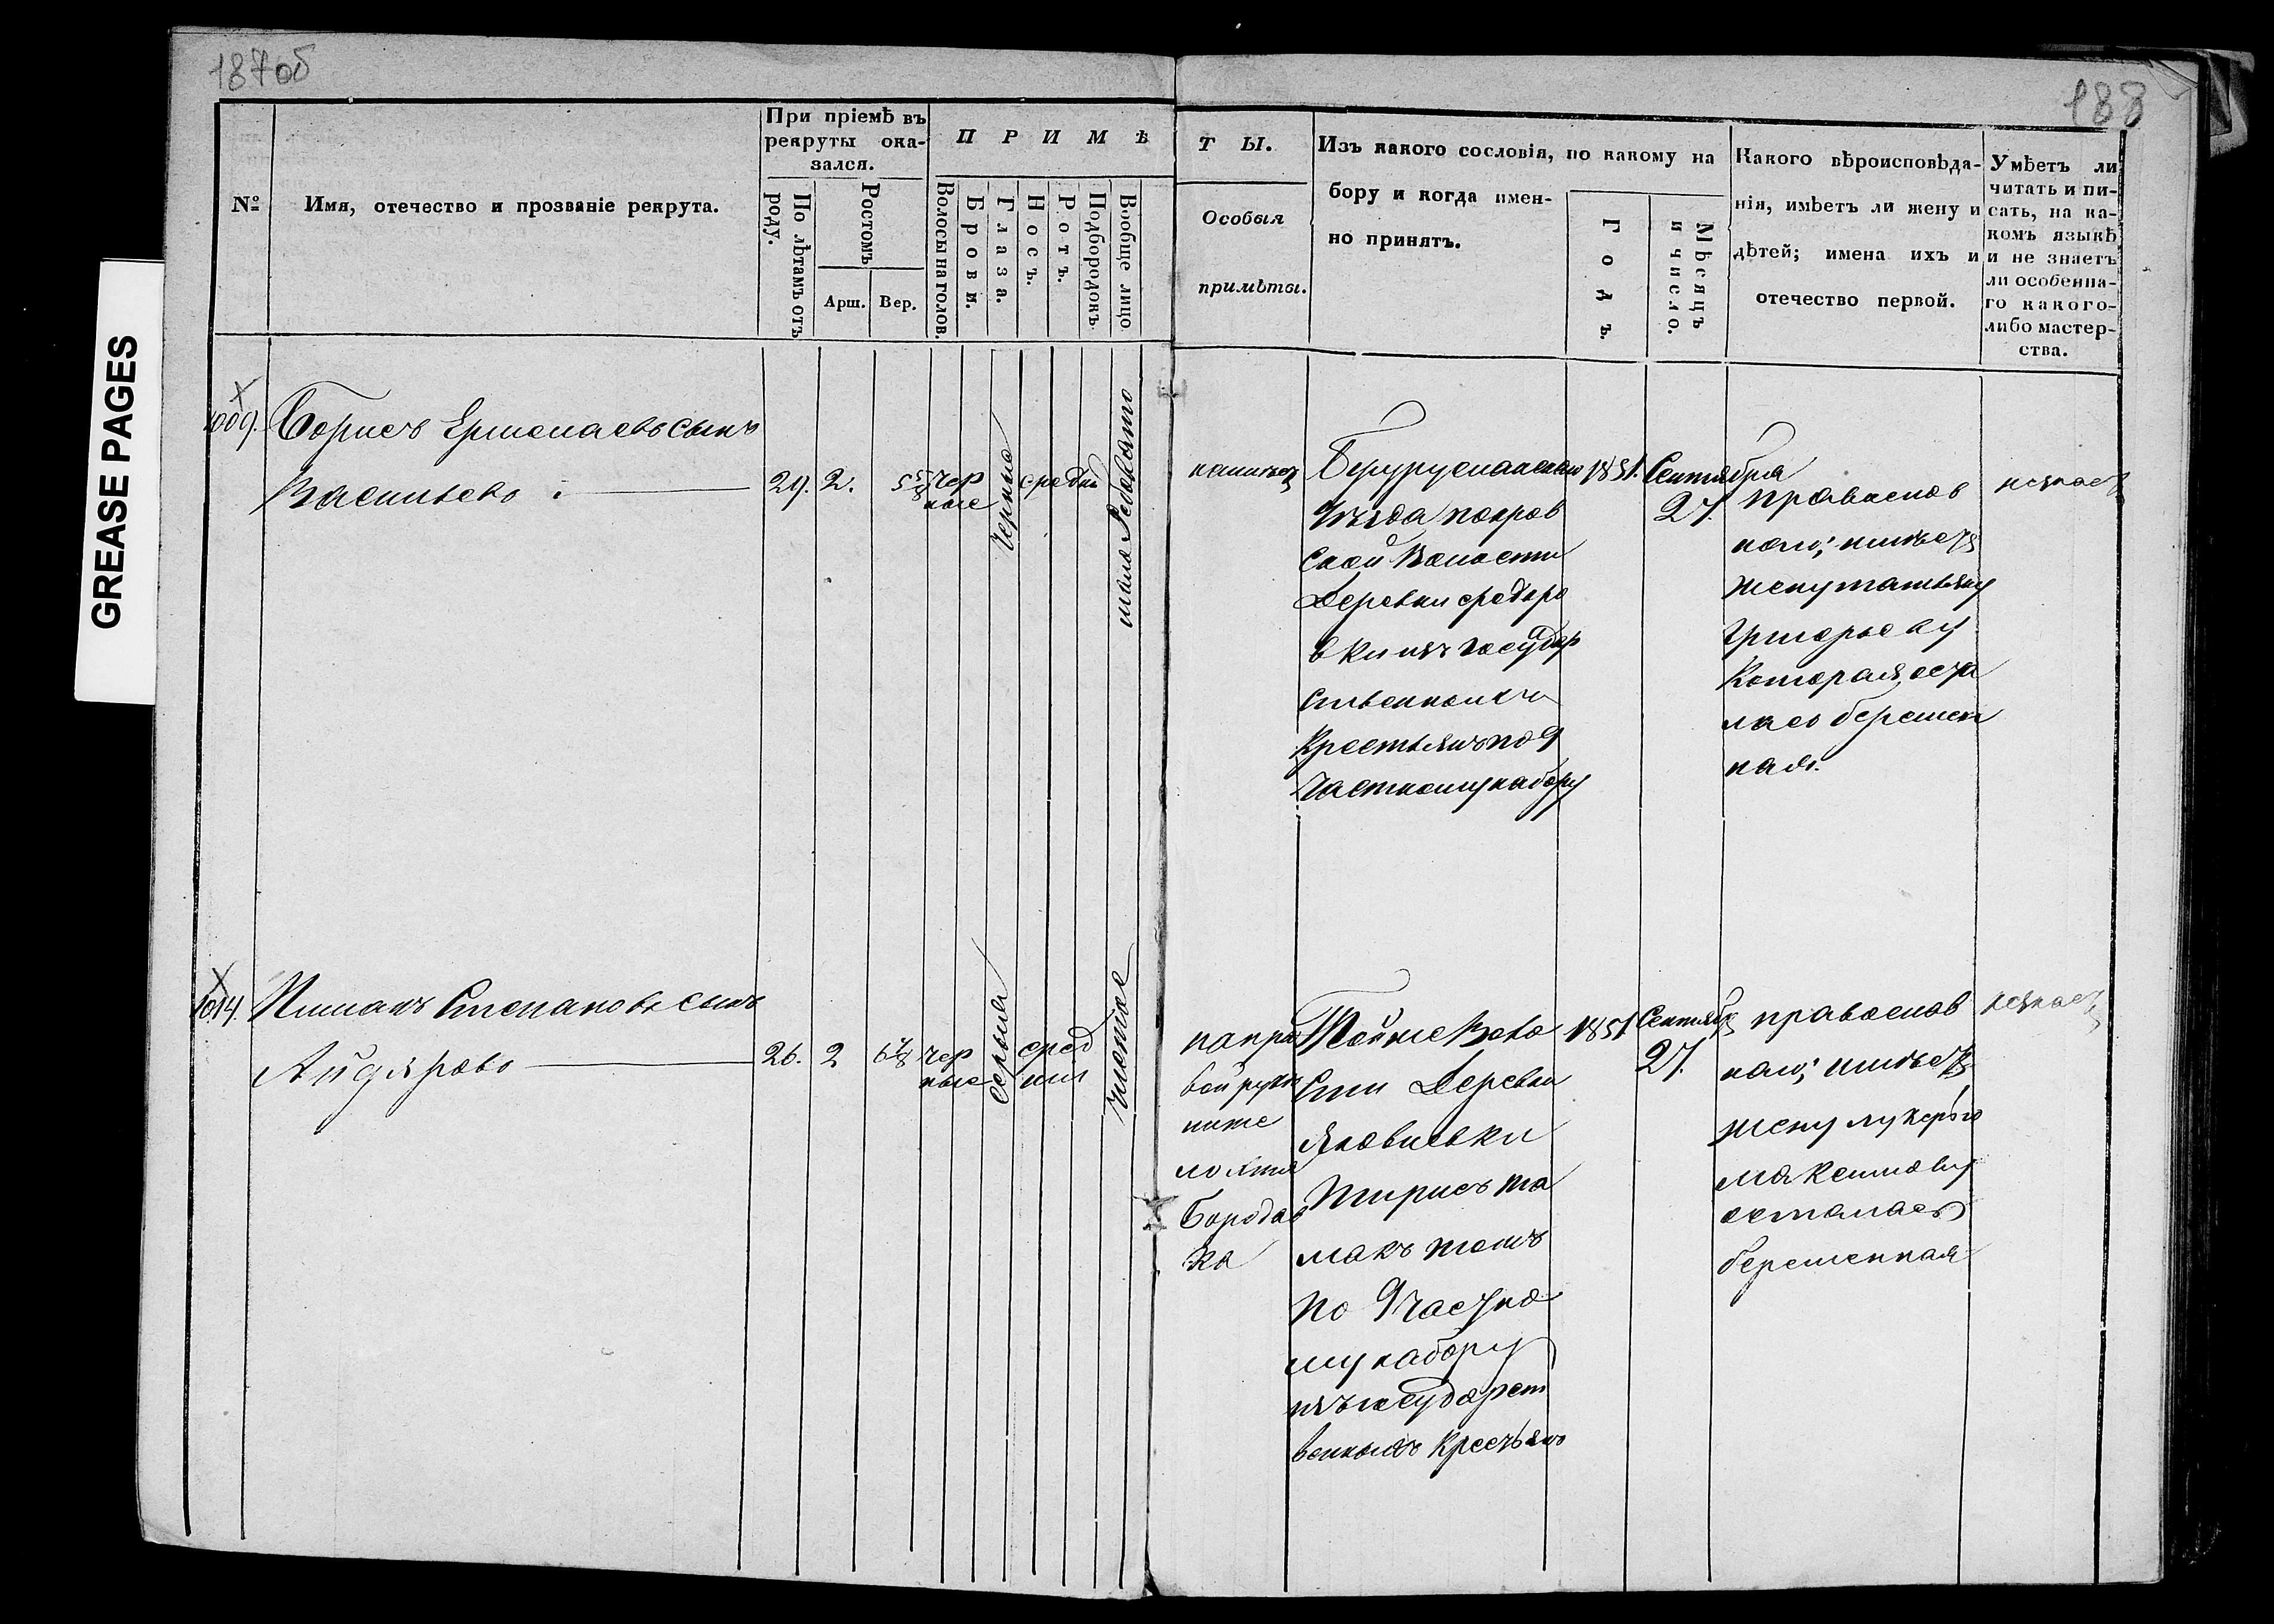 187об
188
GREASE PAGES
№
Имя, отечество и прозваніе рекрута.
При пріемѣ въ
рекруты ока-
зался.
По лѣтамъ отъ
роду.
Ростомъ
Арш.
Вер.
П Р И М Ѣ
Волосы на голов.
Брови.
Глаза.
Носъ.
Ротъ.
Подбородокъ.
Вообще лицо.
Т Ы.
Особыя
примѣты.
Изъ какого сословія, по какому на
бору и когда имен-
но принятъ.
Годъ.
Мѣсяцъ
и число.
Какого вѣроисповѣда-
нія, имѣетъ ли жену и
дѣтей; имена ихъ и
отечество первой.
Умѣетъ ли
читать и пи-
сать, на ка-
комъ языкѣ
и не знаетъ
ли особенна-
го какого-
либо мастер-
ства.
1009.
Борисъ Ермолаевъ сынъ
Васильевъ
29. 2. 5 5/8
чер
ные
Черные
средні
мало Рябовато
Уѣзда покров
ской Волости
Деревни
в ки изъ государ
ственныхъ
Крестьянъ по 9
Частному набору
1851.
Сентября
27.
православ
наго; имѣетъ
жену татьяну
Григорьеву
Которая оста
лась беремен
ная.
незнаетъ
1014.
Степановъ сынъ
Айдяровъ
26. 2 6 1/8
чер
ные
серыя
сред
ния
Чистое
на пра
вой руки
ниже
локтя
Бородав
ка
Той же Воло
сти Деревни
Яковлевки
по 9 частно
му набору
изъ государст
венныхъ Крестьянъ
1851
Сентябр
27.
православ
наго; имѣетъ
жену лукерью
Максимову
осталась
беременная
незнаетъ